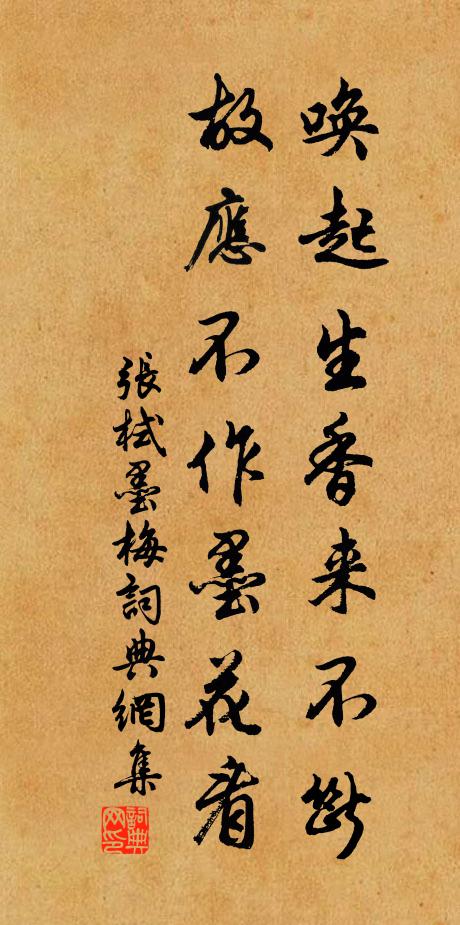 喚起生香来不斷
故應不作墨花看
張栻墨梅詞典網集
詞典网印